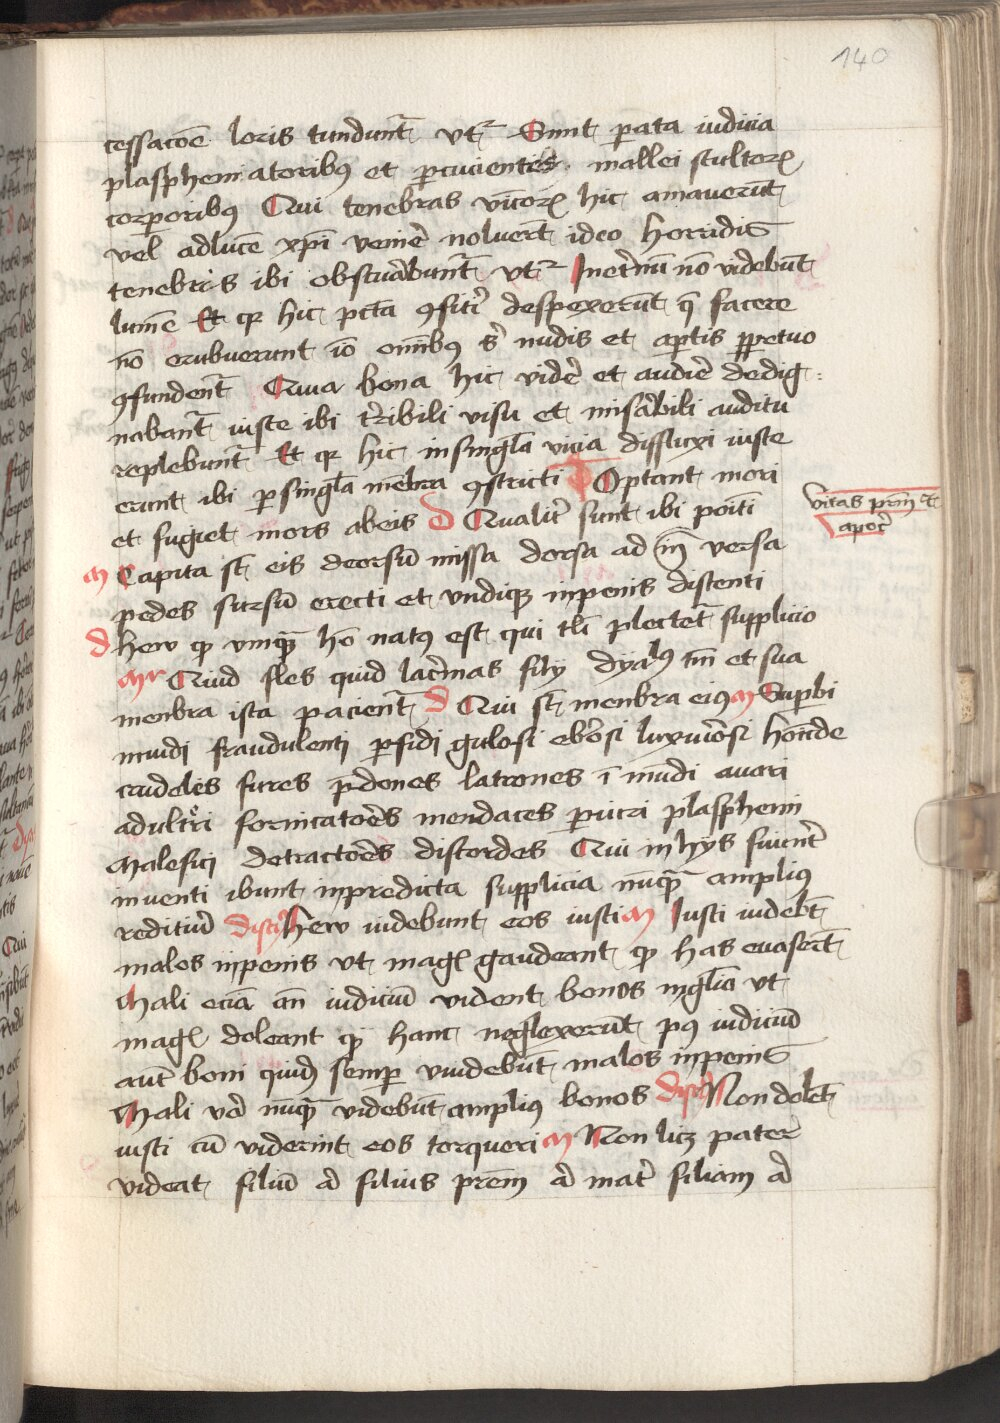 140
cessacōe loris tundunt᷑ vt᷑ Sunt parata iudicia
plasphemiatoribꝰ et ꝑcucientes mallei stultorꝝ
corporibꝰ Qui tenebras viciorꝝ hic amauerūt
vel ad lucē xp̄i venire noluerūt ideo horridis
tenebris ibi obscurabunt᷑ vt᷑ In et᷑nū nō videbūt
lumē Et qꝛ hic pctā ꝯfiteri despexerūt q̄ facere
nō erubuerunt iō om̄ibꝰ s᷑ nudis et aꝑtis ꝑpetuo
ꝯfundent᷑ Quia bona hic vide᷑ et audire dedig:
nabant᷑ iuste ibi t᷑ribili visu et mis᷑abili auditu
replebunt᷑ Et qꝛ hic in singl̄a vicia diffluxi iuste
erunt ibi ꝑ singl̄a mēbra ꝯstricti Optant mori
et fugiet mors ab eis D Qualit᷑ sunt ibi poiti
vitas pr̄m et
apoc᷑
M Capita st̄ eis deorsū missa dorsa ad in᷑ versa
pedes sursū erecti et vndiqꝫ in penis distenti
D hew qꝫ vmqꝫ hō natꝰ est qui tl̄i plectet᷑ supplicio
Mr Quid fles quid lac᷑mas fily dyabolꝰ tm̄ et sua
menbra ista pacient᷑ D Qui st̄ menbra eiꝰ M Suꝑbi
inuidi fraudulenti ꝑfidi gulosi eb᷑osi luxuriosi homicide
crudeles fures p᷑dones latrones īmūdi auari
adult᷑i fornicatores mendaces ꝑiuri plasphemi
Malefici detractores discordes Qui in hys fuerint
inuenti ibunt in predicta supplicia nūqꝫ ampliꝰ
redituri disc᷑ hew videbunt eos iusti M Iusti videbt̄
malos in penis vt magꝭ gaudeant qꝫ has euaserūt
Mali eciā an̄ iudiciū vident bonos in glīa vt
magꝭ doleant qꝫ hanc neglexerūt pꝰ iudiciū
aūt boni quidē semꝑ videbūt malos in penis
Mali v᷑o nūqꝫ videbūt ampliꝰ bonos disc᷑ Non dolebt̄
iusti cū viderint eos torqueri M Non licꝫ pater
videat filiū aut filius pr̄em aut mat᷑ filiam aut